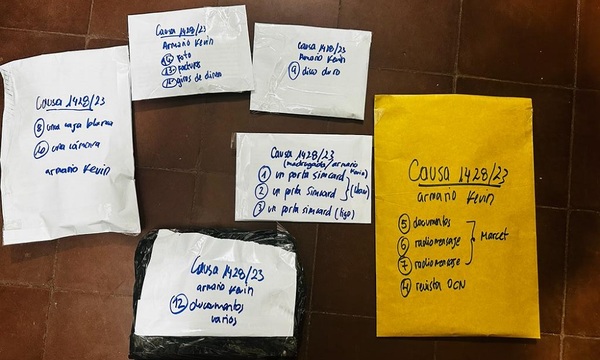 Causa 1428/23
Armario Kevin
14 foto
13 factura
giros de
Causa 1428/23
Armario Kevin
9 disco duro
Causa 1428/23
8 una caja blanca
una cámara
armario Kevin
Causa 1428/23
(madrugada/armario Kevin)
1 un porta simcard
2 un porta simcard (claro)
3 un porta simcard (tigo)
Causa 1428/23
armario Kevin
5 documentos
6 radiomensage Marcet
7 radiomensage
4 revista DCN
Causa 1428/23
armario Kevin
12 documentos
varios